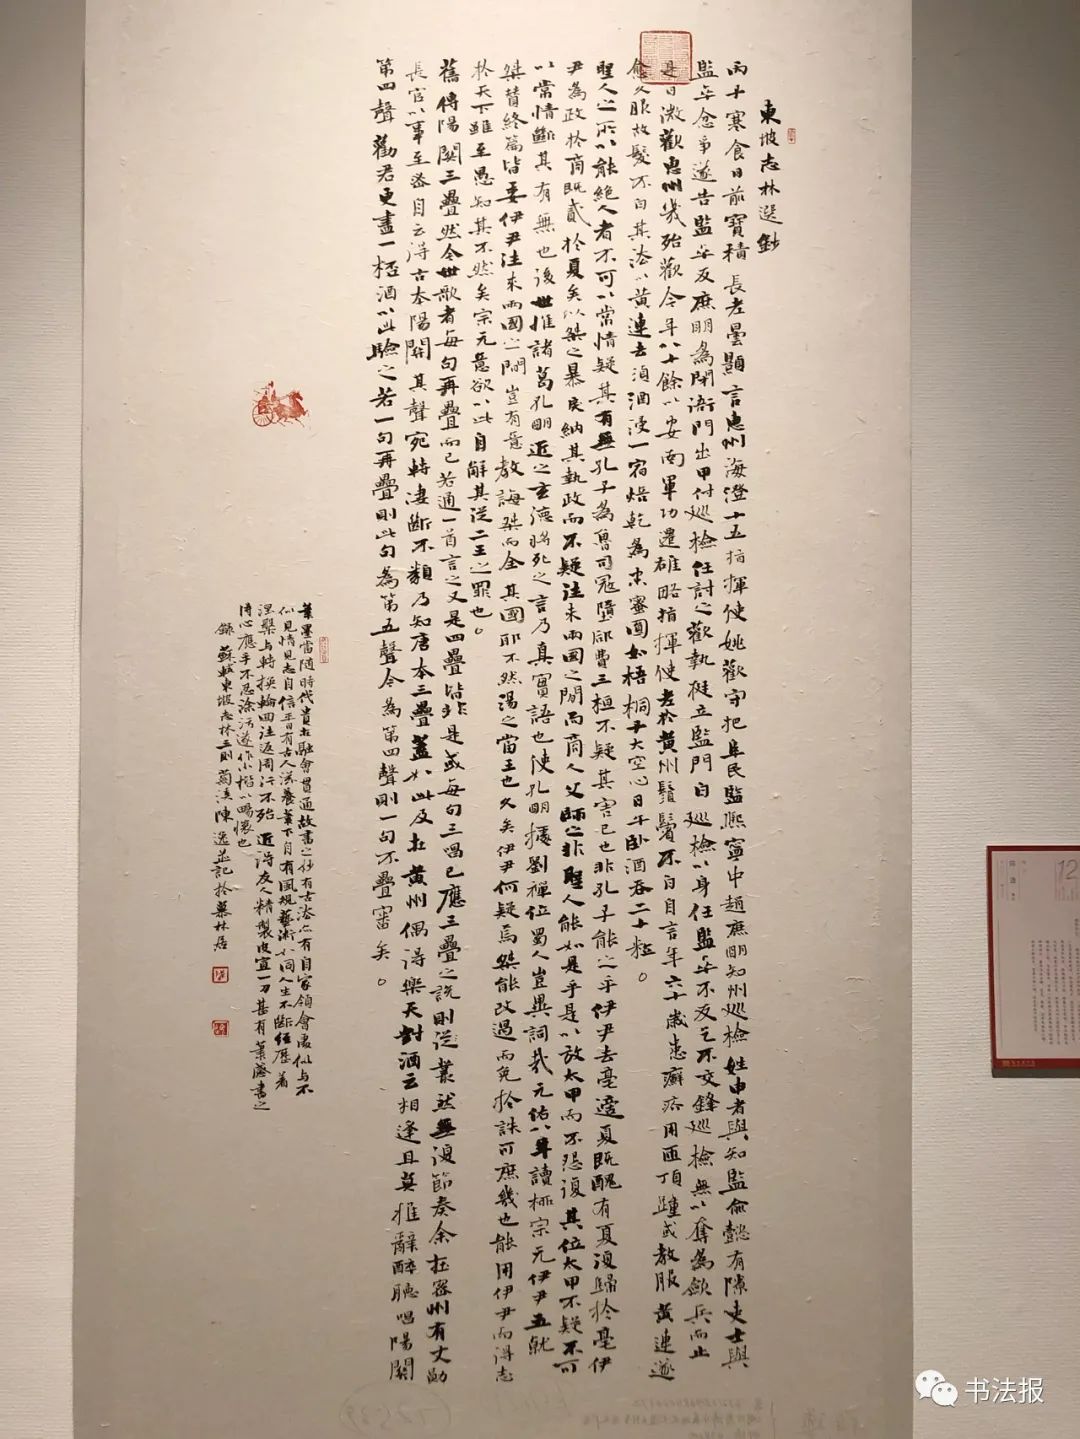 東坡志林選鈔
丙子寒食日前寶積長老曇顯言惠州海澄十五指揮使姚歡守把阜民監熙寧中趙庶明知州巡檢姓申者與知監俞懿有隙吏士與
監卒忿爭遂告監卒反庶明為閉衙門出甲付巡檢任討之歡執挺立監門白巡檢以身任監卒不反乞不交鋒巡檢無以奪為斂兵而止
是日微歡惠州幾殆歡今年八十餘以安南軍功遷雄略指揮使老於黃州鬚鬢不白自言年六十歲患癬疥周匝頂踵或教服黃連遂
愈久服故髮不白其法以黃連去鬚酒浸一宿焙乾為末蜜圓如梧桐子大空心日午臥酒吞二十粒。
聖人之所以能絕人者不可以常情疑其有無孔子為魯司寇墮郈費三桓不疑其害己也非孔子能之乎伊尹去亳適夏既醜有夏復歸於亳伊
尹為政於商既貳於夏矣以桀之暴戾納其執政而不疑往來兩國之間而商人父師之非聖人能如是乎是以放太甲而不怨復其位太甲不疑不可
以常情斷其有無也後世惟諸葛孔明近之玄德將死之言乃真實語也使孔明據劉禪位蜀人豈異詞哉元佑八年讀柳宗元伊尹五就
桀贊終篇皆妄伊尹往來兩國之間豈有意教誨桀而全其國耶不然湯之當王也久矣伊尹何疑焉桀能改過而免於誅可庶幾也能用伊尹而得志
於天下雖至愚知其不然矣宗元意欲以此自解其從二王之罪也。
舊傳陽關三疊然今世歌者每句再疊而已若通一首言之又是四疊皆非是或每句三唱已應三疊之說則從叢然無復節奏余在密州有文勛
長官以事至密自云得古本陽關其聲宛轉淒斷不類乃知唐本三疊蓋如此及在黃州偶得樂天對酒云相逢且莫推辭醉聽唱陽關
第四聲勸君更盡一杯酒以此驗之若一句再疊則此句為第五聲今為第四聲則一句不疊審矣。
筆墨當隨時代貴在融會貫通故書之妙有古法亦有自家領會處似與不
似見情見志自信平日有古人滋養筆下自有風規藝術如同人生不斷經歷着
涅槃與轉換輪回往返周行不殆近得友人精製皮宣一刀甚有筆感書之
得心應手不忍塗污遂作小楷以暢懷也
錄蘇軾東坡志林三則 陳逸並記於慕林居
书法报